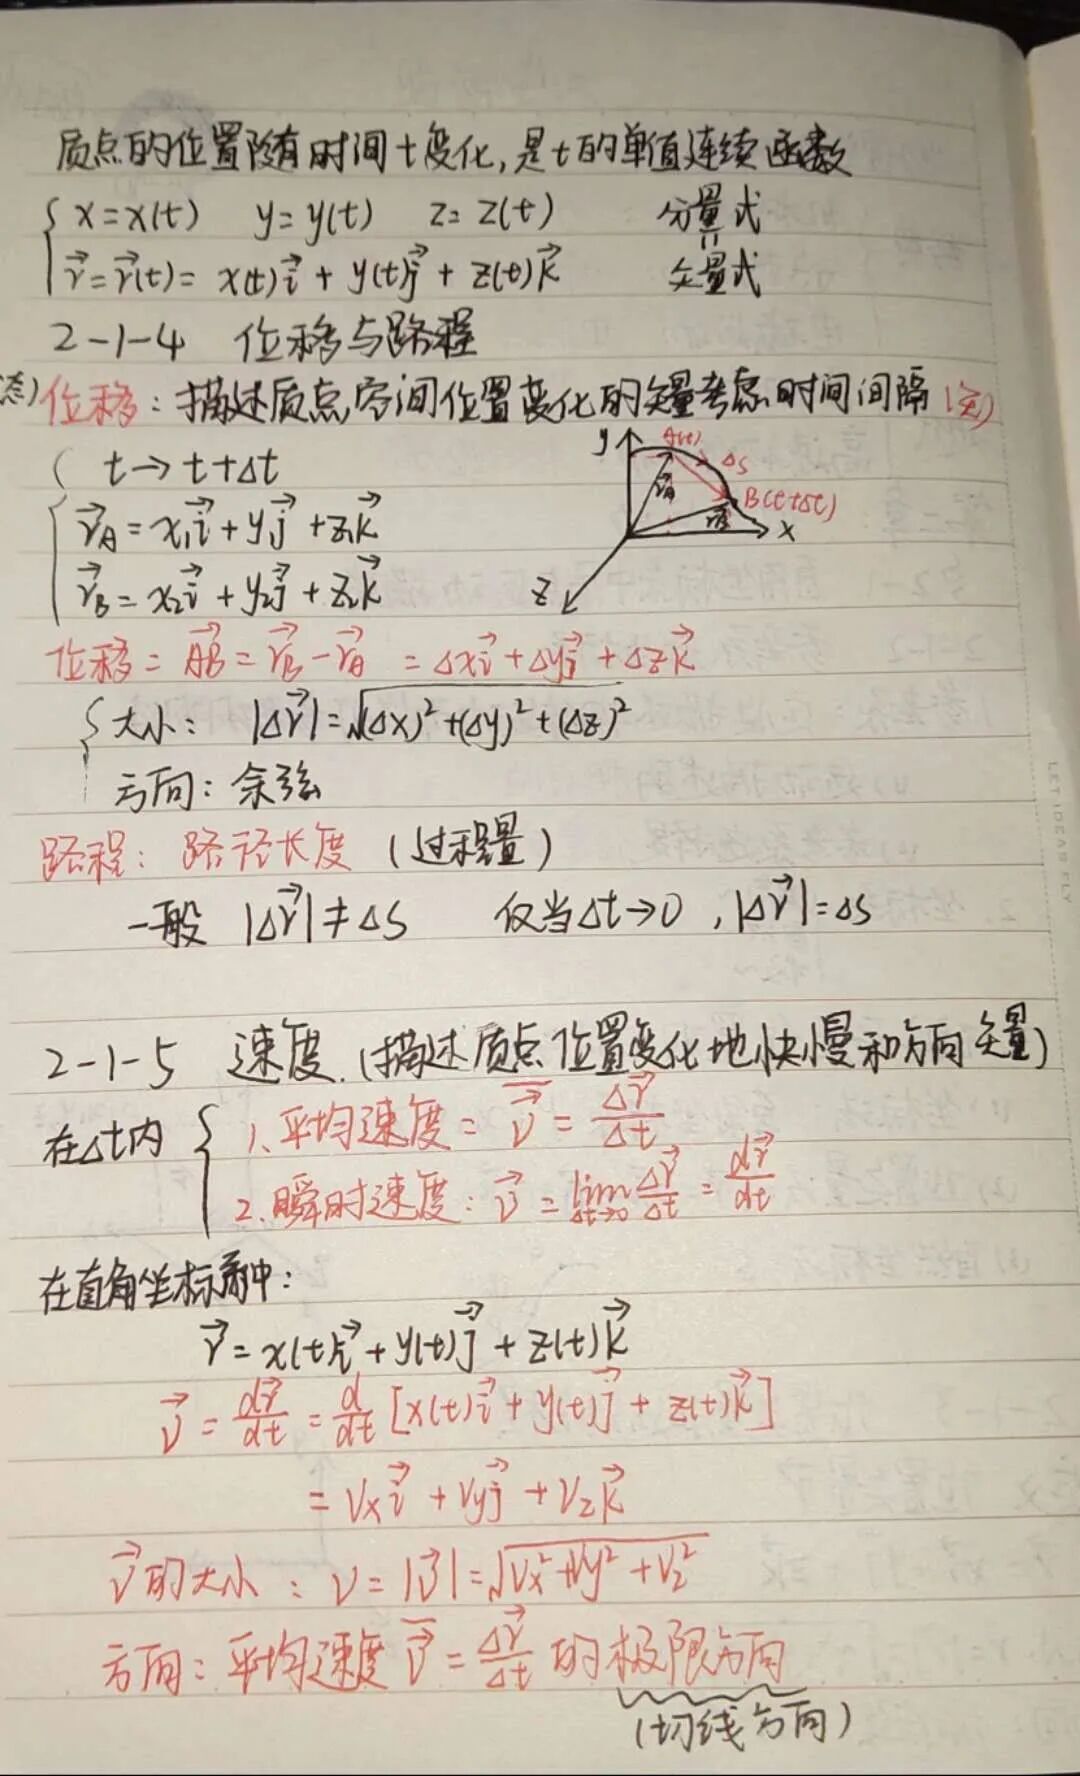 质点的位置随有时间t变化,是t的单值连续函数
x=x(t) y=y(t) z=z(t) 分量式
r⃗=r⃗(t)=x(t)i⃗+y(t)j⃗+z(t)k⃗ 矢量式
2-1-4 位移与路程
位移:描述质点空间位置变化的矢量考虑时间间隔
t→t+Δt
r⃗A=x₁i⃗+y₁j⃗+z₁k⃗
r⃗B=x₂i⃗+y₂j⃗+z₂k⃗
y A(t) ΔS
r⃗A B(t+Δt)
r⃗B x
z
位移=AB⃗=r⃗B-r⃗A=Δxi⃗+Δyj⃗+Δzk⃗
大小: |Δr⃗|=√(Δx)²+(Δy)²+(Δz)²
方向:余弦
路程:路径长度(过程量)
一般 |Δr⃗|≠ΔS 仅当Δt→0,|Δr⃗|=ΔS
2-1-5 速度.(描述质点位置变化地快慢和方向矢量)
在Δt内 1.平均速度=v⃗̅=Δr⃗/Δt
2.瞬时速度:v⃗=lim Δt→0 Δr⃗/Δt=dr⃗/dt
在直角坐标系中:
r⃗=x(t)i⃗+y(t)j⃗+z(t)k⃗
v⃗=dr⃗/dt=d/dt[x(t)i⃗+y(t)j⃗+z(t)k⃗]
=Vxi⃗+Vyj⃗+Vzk⃗
v⃗的大小:v=|v⃗|=√Vx²+Vy²+Vz²
方向:平均速度v⃗̅=Δr⃗/Δt的极限方向
(切线方向)
LET IDEAS FLY